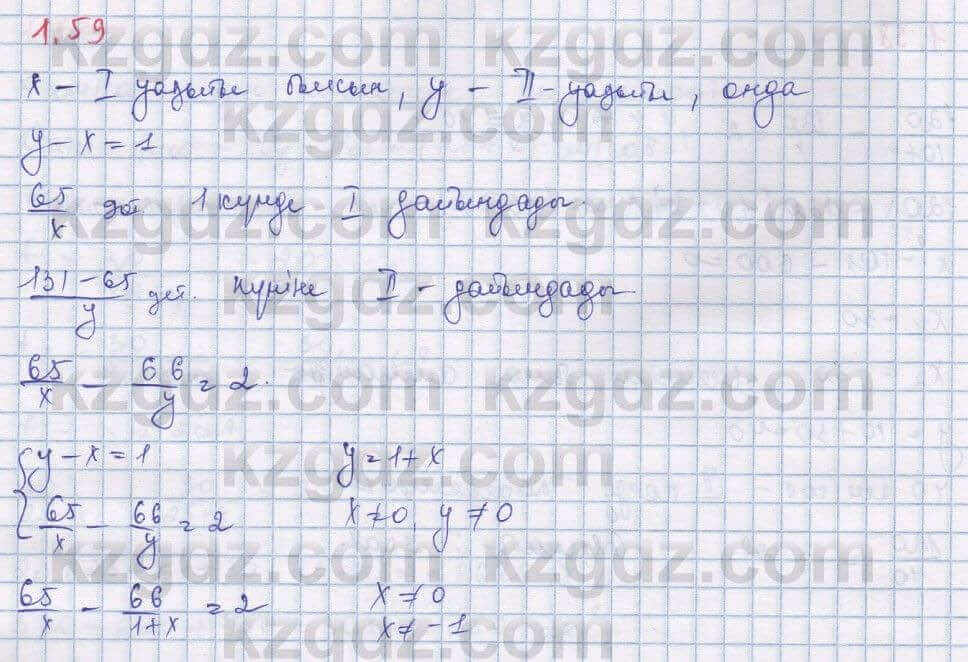 1.59
x – I уақыты болсын, y – II – уақыты, онда
y – x = 1
65/x дет. 1 күнде I дайындады.
131 – 65/y дет. күніне II – дайындады
65/x – 66/y = 2.
{ y – x = 1 y = 1 + x
65/x – 66/y = 2 x ≠ 0, y ≠ 0
65/x – 66/1+x = 2 x ≠ 0
x ≠ –1
kzgdz.com kzgdz.com
kzgdz.com
kzgdz.com kzgdz.com
kzgdz.com
kzgdz.com kzgdz.com
kzgdz.com
kzgdz.com kzgdz.com
kzgdz.com